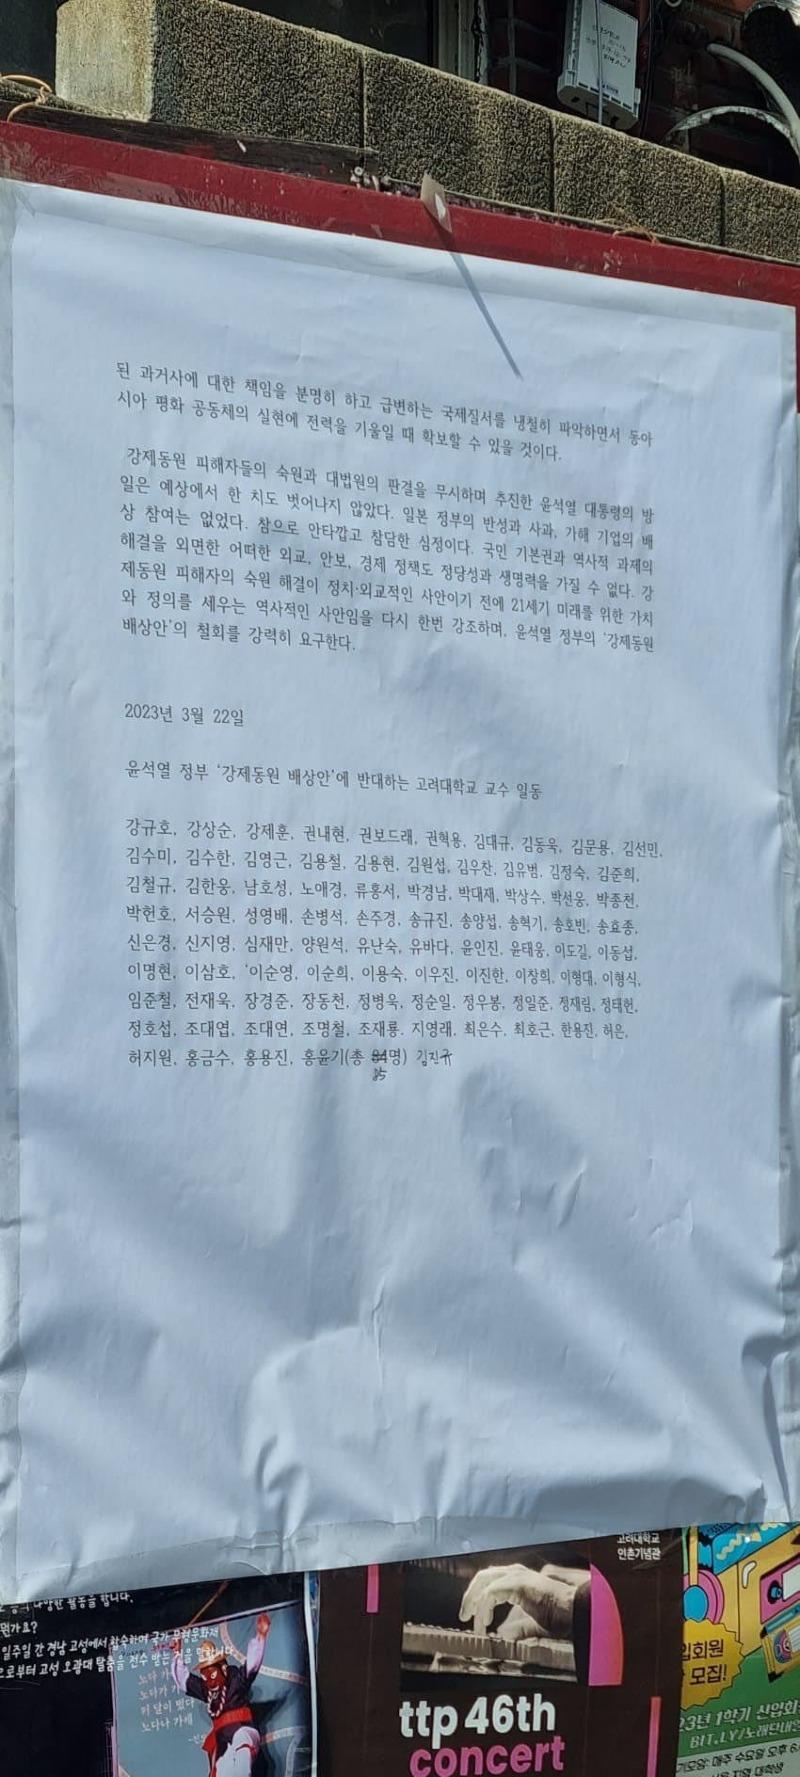 된 과거사에 대한 책임을 분명히 하고 급변하는 국제질서를 냉철히 파악하면서 동아
시아 평화 공동체의 실현에 전력을 기울일 때 확보할 수 있을 것이다.
강제동원 피해자들의 숙원과 대법원의 판결을 무시하며 추진한 윤석열 대통령의 방
일은 예상에서 한 치도 벗어나지 않았다. 일본 정부의 반성과 사과, 가해 기업의 배
상 참여는 없었다. 참으로 안타깝고 참담한 심정이다. 국민 기본권과 역사적 과제의
해결을 외면한 어떠한 외교, 안보, 경제 정책도 정당성과 생명력을 가질 수 없다. 강
제동원 피해자의 숙원 해결이 정치·외교적인 사안이기 전에 21세기 미래를 위한 가치
와 정의를 세우는 역사적인 사안임을 다시 한번 강조하며, 윤석열 정부의 '강제동원
배상안'의 철회를 강력히 요구한다.
2023년 3월 22일
윤석열 정부 '강제동원 배상안'에 반대하는 고려대학교 교수 일동
강규호, 강상순, 강제훈, 권내현, 권보드래, 권혁용, 김대규, 김동욱, 김문용, 김선민,
김수미, 김수한, 김영근, 김용철, 김용현, 김원섭, 김우찬, 김유범, 김정숙, 김준희,
김철규, 김한웅, 남호성, 노애경, 류홍서, 박경남, 박대재, 박상수, 박선웅, 박종천,
박헌호, 서승원, 성영배, 손병석, 손주경, 송규진, 송양섭, 송혁기, 송호빈, 송효종,
신은경, 신지영, 심재만, 양원석, 유난숙, 유바다, 윤인진, 윤태웅, 이도길, 이동섭,
이명현, 이삼호, '이순영, 이순희, 이용숙, 이우진, 이진한, 이창희, 이형대, 이형식,
임준철, 전재욱, 장경준, 장동천, 정병욱, 정순일, 정우봉, 정일준, 정재림, 정태헌,
정호섭, 조대엽, 조대연, 조명철, 조재룡, 지영래, 최은수, 최호근, 한용진, 허은,
허지원, 홍금수, 홍용진, 홍윤기(총 84명) 김진규
85
고려대학교
인촌기념관
다양한 활동을 합니다.
뭔가요?
일주일 간 경남 고성에서 합숙하며 국가 무형문화재
으로부터 고성 오광대 탈춤을 전수 받는 것을 말합니다
노다 가
노다가
더 달이 떴다
노다나 가세
ttp 46th
concert
입회원
모집!
23년 1학기 신입회
BIT.LY/노래단내
매주 수요일 오후